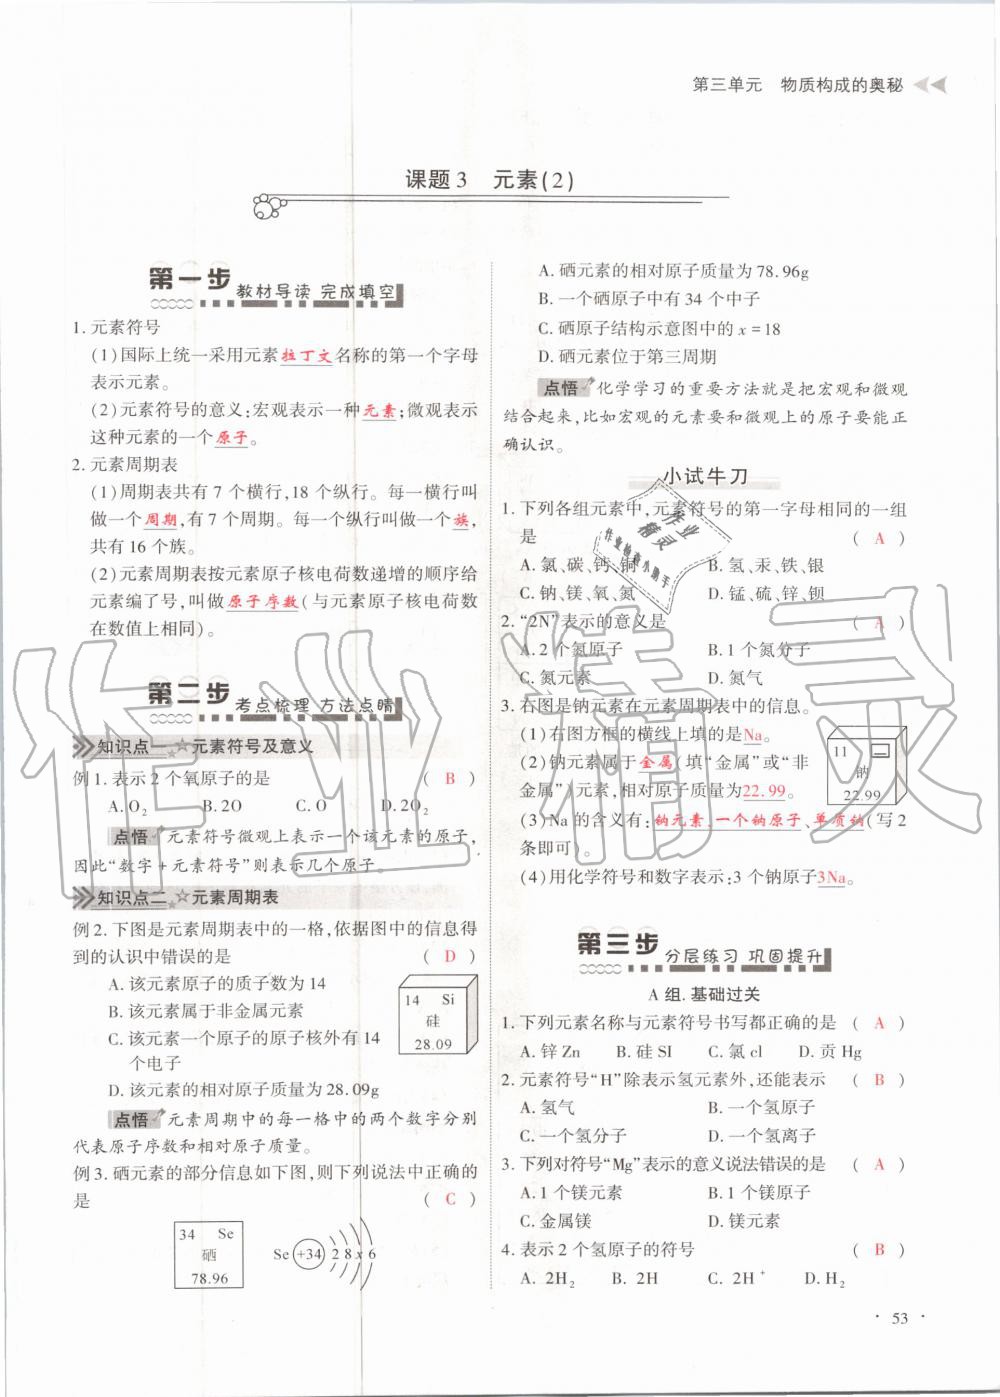 第三单元　物质构成的奥秘
课题3　元素(2)
第一步 教材导读 完成填空
1. 元素符号
(1)国际上统一采用元素拉丁文名称的第一个字母
表示元素。
(2)元素符号的意义:宏观表示一种元素;微观表示
这种元素的一个原子。
2. 元素周期表
(1)周期表共有7个横行,18个纵行。每一横行叫
做一个周期,有7个周期。每一个纵行叫做一个族,
共有16个族。
(2)元素周期表按元素原子核电荷数递增的顺序给
元素编了号,叫做原子序数(与元素原子核电荷数
在数值上相同)。
第二步 考点梳理 方法点睛
知识点一 ☆元素符号及意义
例1. 表示2个氧原子的是 ( B )
A. O₂ B. 2O C. O D. 2O₂
点悟 元素符号微观上表示一个该元素的原子,
因此“数字+元素符号”则表示几个原子
知识点二 ☆元素周期表
例2. 下图是元素周期表中的一格,依据图中的信息得
到的认识中错误的是 ( D )
A. 该元素原子的质子数为14
B. 该元素属于非金属元素
C. 该元素一个原子的原子核外有14
个电子
D. 该元素的相对原子质量为28.09g
14 Si
硅
28.09
点悟 元素周期中的每一格中的两个数字分别
代表原子序数和相对原子质量。
例3. 硒元素的部分信息如下图,则下列说法中正确的
是 ( C )
34 Se
硒
78.96
Se +34 2 8 x 6
A. 硒元素的相对原子质量为78.96g
B. 一个硒原子中有34个中子
C. 硒原子结构示意图中的x=18
D. 硒元素位于第三周期
点悟 化学学习的重要方法就是把宏观和微观
结合起来,比如宏观的元素要和微观上的原子要能正
确认识。
小试牛刀
1. 下列各组元素中,元素符号的第一字母相同的一组
是 ( A )
A. 氯、碳、钙、铜 B. 氢、汞、铁、银
C. 钠、镁、氧、氮 D. 锰、硫、锌、钡
2. “2N”表示的意义是 ( A )
A. 2个氮原子 B. 1个氮分子
C. 氮元素 D. 氮气
3. 右图是钠元素在元素周期表中的信息。
(1)右图方框的横线上填的是Na。
(2)钠元素属于金属(填“金属”或“非
金属”)元素,相对原子质量为22.99。
(3)Na的含义有:钠元素、一个钠原子、单质钠(写2
条即可)。
(4)用化学符号和数字表示:3个钠原子3Na。
11
钠
22.99
第三步 分层练习 巩固提升
A组. 基础过关
1. 下列元素名称与元素符号书写都正确的是 ( A )
A. 锌Zn B. 硅SI C. 氯cl D. 贡Hg
2. 元素符号“H”除表示氢元素外,还能表示 ( B )
A. 氢气 B. 一个氢原子
C. 一个氢分子 D. 一个氢离子
3. 下列对符号“Mg”表示的意义说法错误的是 ( A )
A. 1个镁元素 B. 1个镁原子
C. 金属镁 D. 镁元素
4. 表示2个氢原子的符号 ( B )
A. 2H₂ B. 2H C. 2H⁺ D. H₂
· 53 ·
作业精灵
作业精灵
作业检查小助手